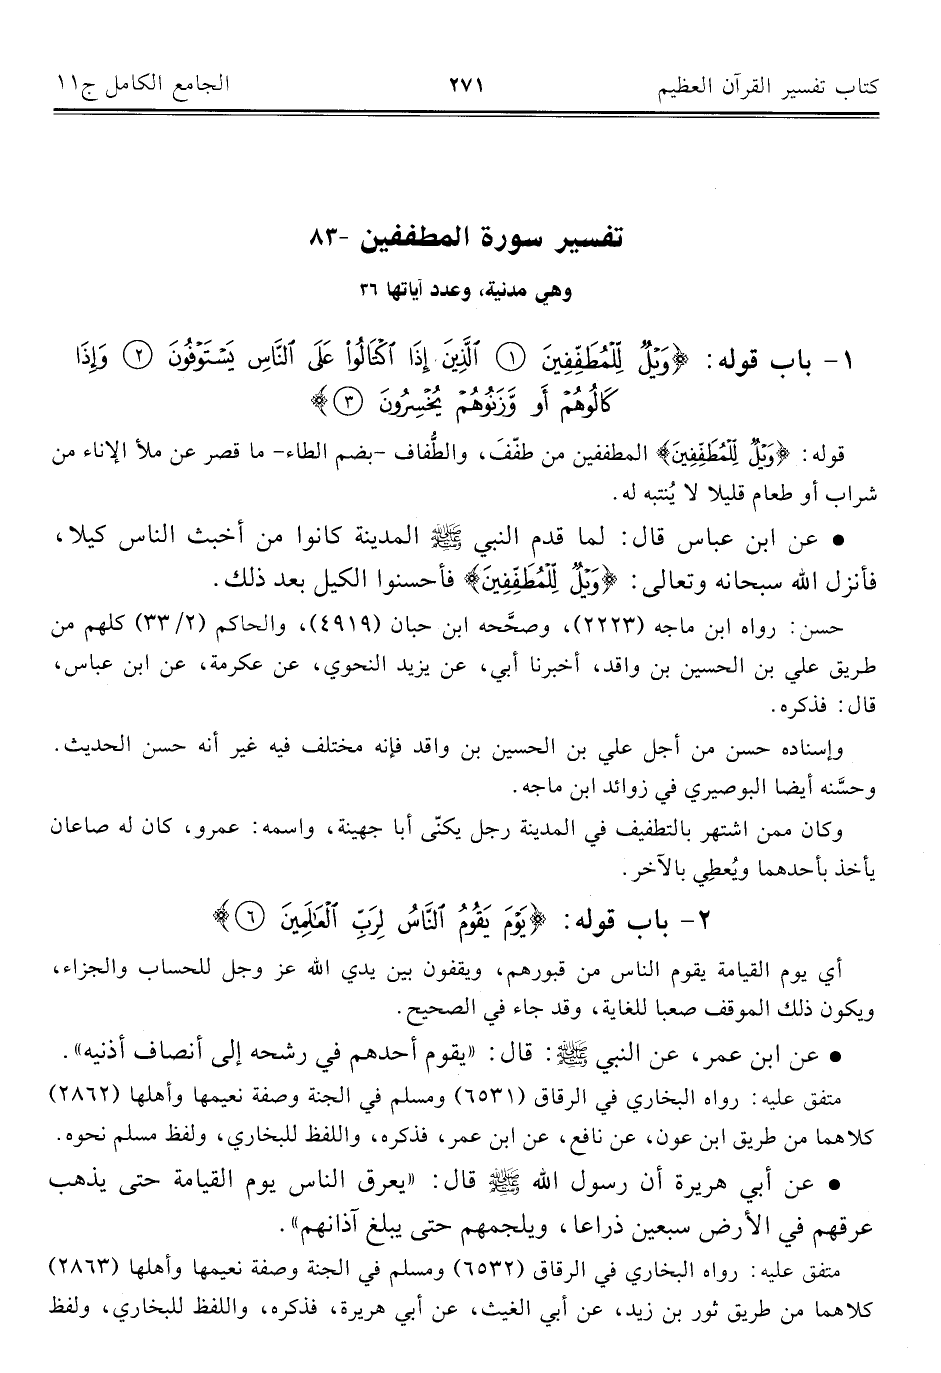 كتاب تفسير القرآن العظيم ٢٧١ الجامع الكامل ج١١
تفسير سورة المطففين -٨٣
وهي مدنية، وعدد آياتها ٣٦
١- باب قوله: ﴿وَيْلٌ لِّلْمُطَفِّفِينَ ١ ٱلَّذِينَ إِذَا ٱكْتَالُوا۟ عَلَى ٱلنَّاسِ يَسْتَوْفُونَ ٢ وَإِذَا
كَالُوهُمْ أَو وَّزَنُوهُمْ يُخْسِرُونَ ٣﴾
قوله: ﴿وَيْلٌ لِّلْمُطَفِّفِينَ﴾ المطففين من طفّفَ، والطُّفاف -بضم الطاء- ما قصر عن ملأ الإناء من
شراب أو طعام قليلا لا يُنتبه له.
• عن ابن عباس قال: لما قدم النبي ﷺ المدينة كانوا من أخبث الناس كيلا،
فأنزل الله سبحانه وتعالى: ﴿وَيْلٌ لِّلْمُطَفِّفِينَ﴾ فأحسنوا الكيل بعد ذلك.
حسن: رواه ابن ماجه (٢٢٢٣)، وصحَّحه ابن حبان (٤٩١٩)، والحاكم (٢/ ٣٣) كلهم من
طريق علي بن الحسين بن واقد، أخبرنا أبي، عن يزيد النحوي، عن عكرمة، عن ابن عباس،
قال: فذكره.
وإسناده حسن من أجل علي بن الحسين بن واقد فإنه مختلف فيه غير أنه حسن الحديث.
وحسَّنه أيضا البوصيري في زوائد ابن ماجه.
وكان ممن اشتهر بالتطفيف في المدينة رجل يكنّى أبا جهينة، واسمه: عمرو، كان له صاعان
يأخذ بأحدهما ويُعطِي بالآخر.
٢- باب قوله: ﴿يَوْمَ يَقُومُ ٱلنَّاسُ لِرَبِّ ٱلْعَٰلَمِينَ ٦﴾
أي يوم القيامة يقوم الناس من قبورهم، ويقفون بين يدي الله عز وجل للحساب والجزاء،
ويكون ذلك الموقف صعبا للغاية، وقد جاء في الصحيح.
• عن ابن عمر، عن النبي ﷺ: قال: «يقوم أحدهم في رشحه إلى أنصاف أذنيه».
متفق عليه: رواه البخاري في الرقاق (٦٥٣١) ومسلم في الجنة وصفة نعيمها وأهلها (٢٨٦٢)
كلاهما من طريق ابن عون، عن نافع، عن ابن عمر، فذكره، واللفظ للبخاري، ولفظ مسلم نحوه.
• عن أبي هريرة أن رسول الله ﷺ قال: «يعرق الناس يوم القيامة حتى يذهب
عرقهم في الأرض سبعين ذراعا، ويلجمهم حتى يبلغ آذانهم».
متفق عليه: رواه البخاري في الرقاق (٦٥٣٢) ومسلم في الجنة وصفة نعيمها وأهلها (٢٨٦٣)
كلاهما من طريق ثور بن زيد، عن أبي الغيث، عن أبي هريرة، فذكره، واللفظ للبخاري، ولفظ